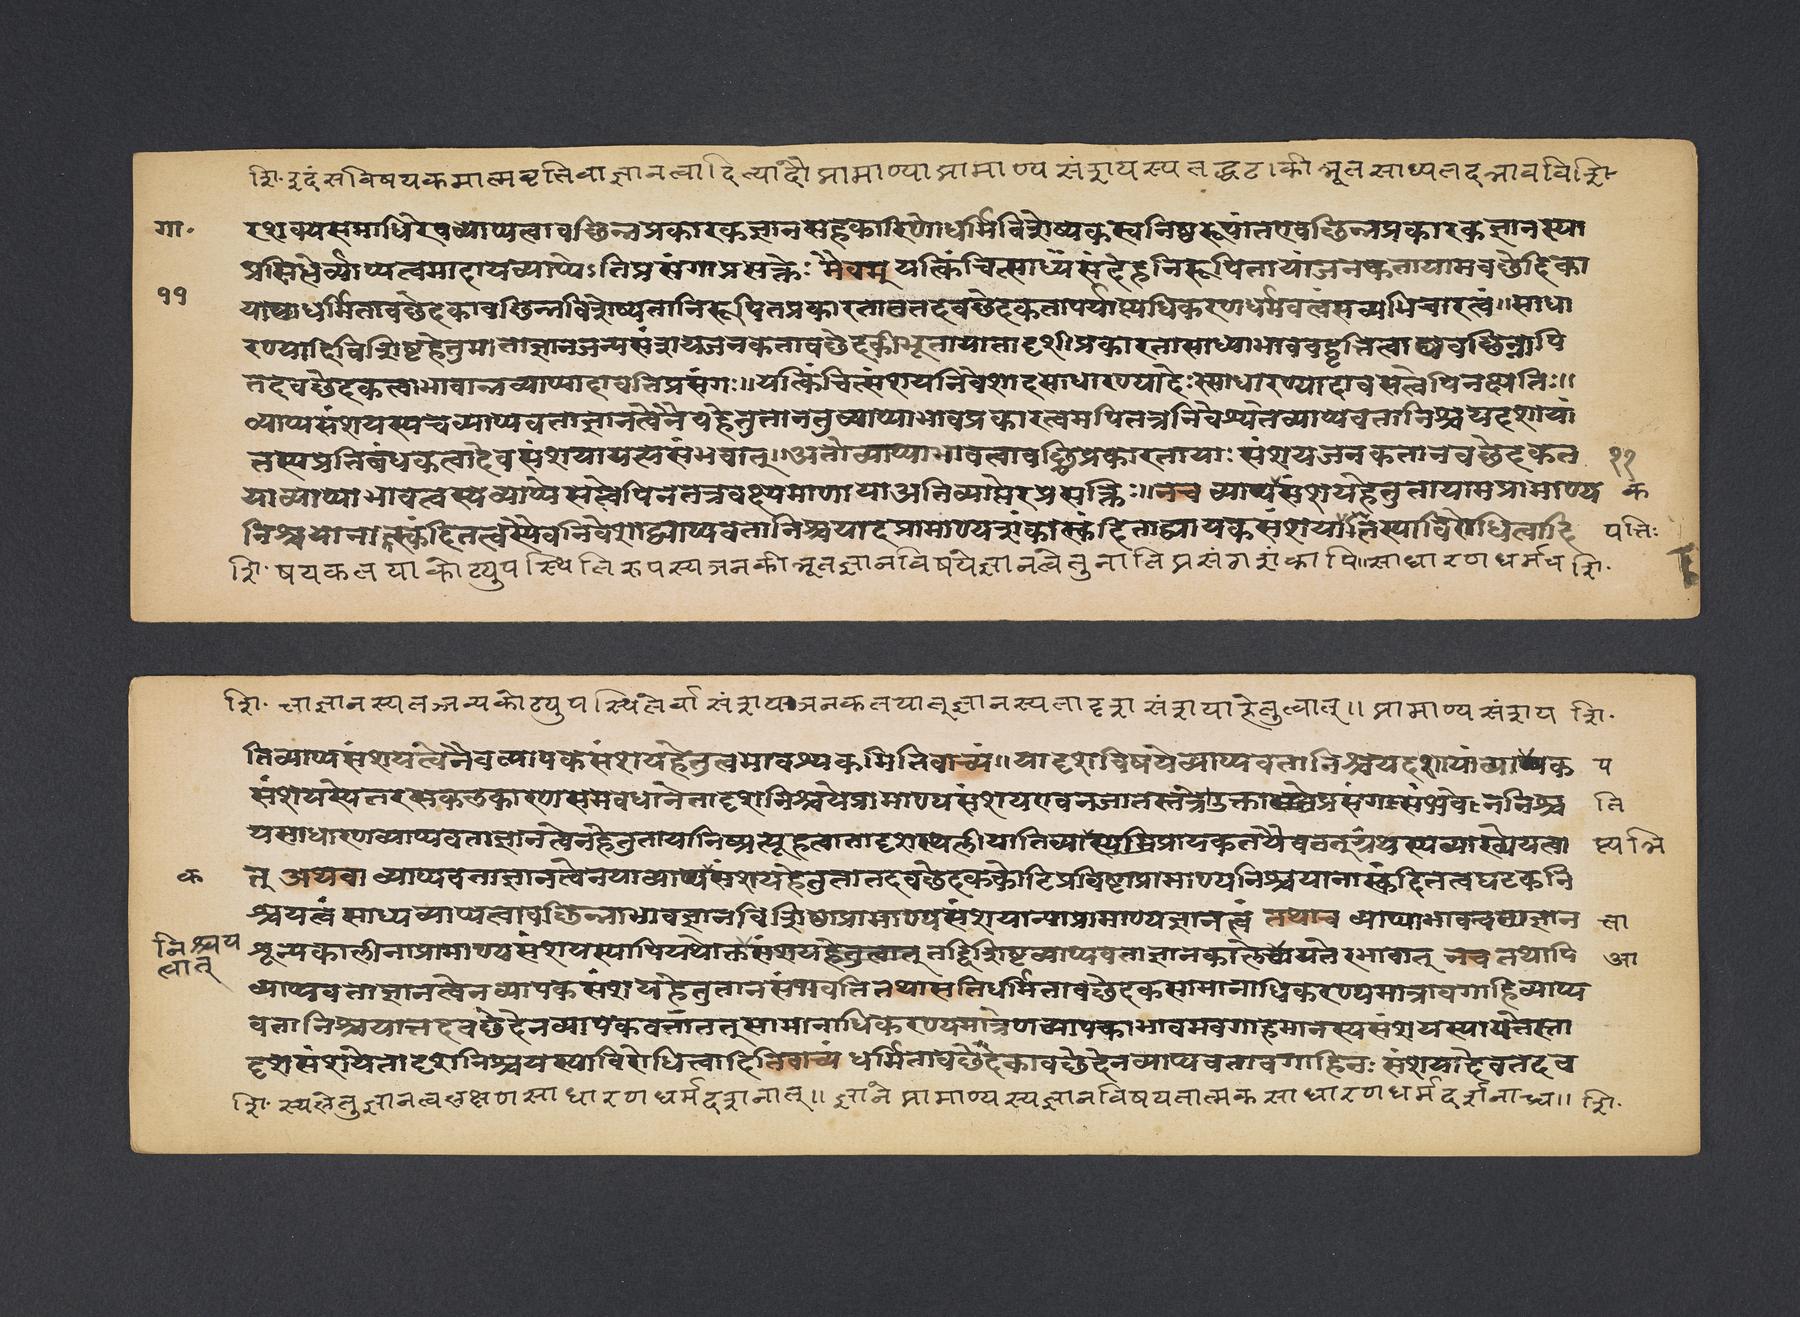 शि. इदं सविषयकमात्मवृत्तिवा ज्ञानत्वादित्यादौ प्रामाण्याप्रामाण्य संशयस्य तद्घटकीभूत साध्यतदभावविशि
गा.
रशक्यसमाधिरेव व्याप्यत्वावछिन्नप्रकारकज्ञानसहकारिणोधर्मिविशेष्यकस्वनिष्ठरूपांतरावछिन्नप्रकारकज्ञानस्या
प्रसिद्धेर्व्याप्यत्वमादायव्याप्येऽतिप्रसंगाप्रसक्तेः मैवम् यत्किंचित्साध्यसंदेहनिरूपितायांजनकतायामवछेदिका
११
याधर्मितावछेदकावछिन्नविशेष्यतानिरूपितप्रकारतातदवछेदकतापर्याप्त्यधिकरणधर्मवत्वंसव्यभिचारत्वं॥साधा
रण्यादिविशिष्टहेतुमत्ताज्ञानजन्यसंशयजनकतावछेदकीभूतायातादृशीप्रकारतासाध्याभाववद्वृत्तित्वाद्यवछिन्नापि
तदवछेदकत्वाभावान्नव्याप्यादावतिप्रसंगः॥यत्किंचित्संशयनिवेशादसाधारण्यादेःसाधारण्यादावसत्वेपिनक्षतिः॥
व्याप्यसंशयस्यचव्याप्यवत्ताज्ञानत्वेनैवहेतुताननुव्याप्याभावप्रकारत्वमपितत्रनिवेश्यतेव्याप्यवत्तानिश्चयदशायां
तस्यप्रतिबंधकत्वादेवसंशयायत्यसंभवात्।अतोव्याप्याभावत्वावछिन्नप्रकारतायाः संशयजनकतानवछेदकत ११
याव्याप्याभावत्वस्यव्याप्येसत्वेपिनतत्रवक्ष्यमाणायाअतिव्याप्तेरप्रसक्तिः॥नच व्याप्यसंशयहेतुतायामप्रामाण्य क
निश्चयानास्कंदितत्वस्यैवनिवेशाद्व्याप्यवत्तानिश्चयादप्रामाण्यशंकास्कंदिताद्व्यापकसंशयात्तस्याविरोधित्वादि पत्तिः
शि. षयकतयाकोट्युपस्थितिरूपस्यजनकीभूतज्ञानविषयेज्ञानत्वेतुनातिप्रसंगशंकापि॥साधारणधर्मव शि.
शि. त्ताज्ञानस्यतज्जन्यकोट्युपस्थितेर्वासंशयजनकतयात्ज्ञानस्यतादृशसंशयाहेतुत्वात्॥ प्रामाण्यसंशय शि.
तिव्याप्यसंशयत्वेनैवव्यापकसंशयहेतुत्वमावश्यकमितिवाच्यं॥यादृशविषयेव्याप्यवत्तानिश्चयदशायांव्यापक य
संशयस्येतरसकलकारणसमवधानेतादृशनिश्चयेप्रामाण्यसंशयएवनजात ति
यसाधारणव्याप्यवत्ताज्ञानत्वेनहेतुतायानिष्प्रत्यूहत्वात्तादृशस्थलीयातिव्या ष्ट्यभि
क त् अथवा व्याप्यवत्ताज्ञानत्वेनयाव्याप्यसंशयहेतुतातदवछेदककोटिप्रविष्टाप्रामाण्यनिश्चयानास्कंदितत्वघटकनि
श्चयत्वं साध्यव्याप्यत्वावछिन्नाभावज्ञानविशिष्टाप्रामाण्यसंशयान्याप्रामाण्यज्ञानत्वं तथाच व्याप्याभाववत्ताज्ञान त्ता
निश्चयत्वात् शून्यकालीनाप्रामाण्यसंशयस्यापियथोक्तसंशयहेतुत्वात् तद्विशिष्टव्याप्यवत्ताज्ञानकाले भावात् नच तथापि आ
व्याप्यवत्ताज्ञानत्वेनव्यापकसंशयहेतुतानसंभवतितथासतिधर्मितावछेदकसामानाधिकरण्यमात्रावगाहिव्याप्य
वत्तानिश्चयात्तदवछेदेनव्यापकवत्तांतत्सामानाधिकरण्यमात्रेणव्यापकाभावमवगाहमानस्यसंशयस्यापत्तेस्ता
दृशसंशयेतादृशनिश्चयस्याविरोधित्वादितिवाच्यं धर्मितावछेदकावछेदेनव्याप्यवत्तावगाहिनः संशयादेवतदव
शि. स्यहेतुज्ञानत्वलक्षणसाधारणधर्मदर्शनात्॥ ज्ञानेप्रामाण्यस्यज्ञानविषयतात्मकसाधारणधर्मदर्शनाच्च॥ शि.